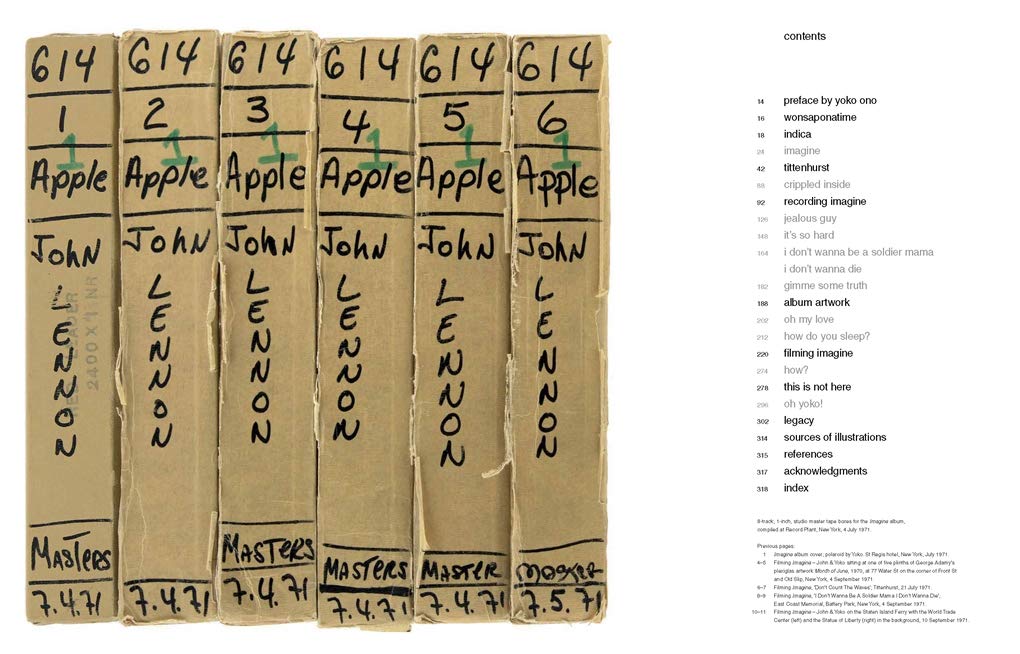 614
1
1
Apple
JOHN
LENNON
LEADER
2400 X 1 NR
MASTERS
7.4.71
614
2
1
Apple
JOHN
LENNON
7.4.71
614
3
1
Apple
JOHN
LENNON
MASTERS
7.4.71
614
4
1
Apple
JOHN
LENNON
MASTERS
7.4.71
614
5
1
Apple
JOHN
LENNON
MASTER
7.4.71
614
6
1
Apple
JOHN
LENNON
7.5.71
contents
14 preface by yoko ono
16 wonsaponatime
18 indica
24 imagine
42 tittenhurst
88 crippled inside
92 recording imagine
126 jealous guy
148 it's so hard
164 i don't wanna be a soldier mama
i don't wanna die
182 gimme some truth
188 album artwork
202 oh my love
212 how do you sleep?
220 filming imagine
274 how?
278 this is not here
296 oh yoko!
302 legacy
314 sources of illustrations
315 references
317 acknowledgments
318 index
8-track, 1-inch, studio master tape boxes for the Imagine album,
compiled at Record Plant, New York, 4 July 1971.
Previous pages:
1 Imagine album cover; polaroid by Yoko. St Regis hotel, New York, July 1971.
4–5 Filming Imagine – John & Yoko sitting at one of five plinths of George Adamy's
plexiglas artwork Month of June, 1970, at 77 Water St on the corner of Front St
and Old Slip, New York, 4 September 1971.
6–7 Filming Imagine, 'Don't Count The Waves', Tittenhurst, 21 July 1971.
8–9 Filming Imagine, 'I Don't Wanna Be A Soldier Mama I Don't Wanna Die',
East Coast Memorial, Battery Park, New York, 4 September 1971.
10–11 Filming Imagine – John & Yoko on the Staten Island Ferry with the World Trade
Center (left) and the Statue of Liberty (right) in the background, 10 September 1971.